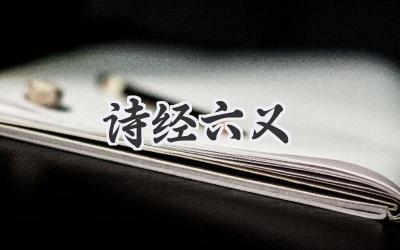 诗经六义